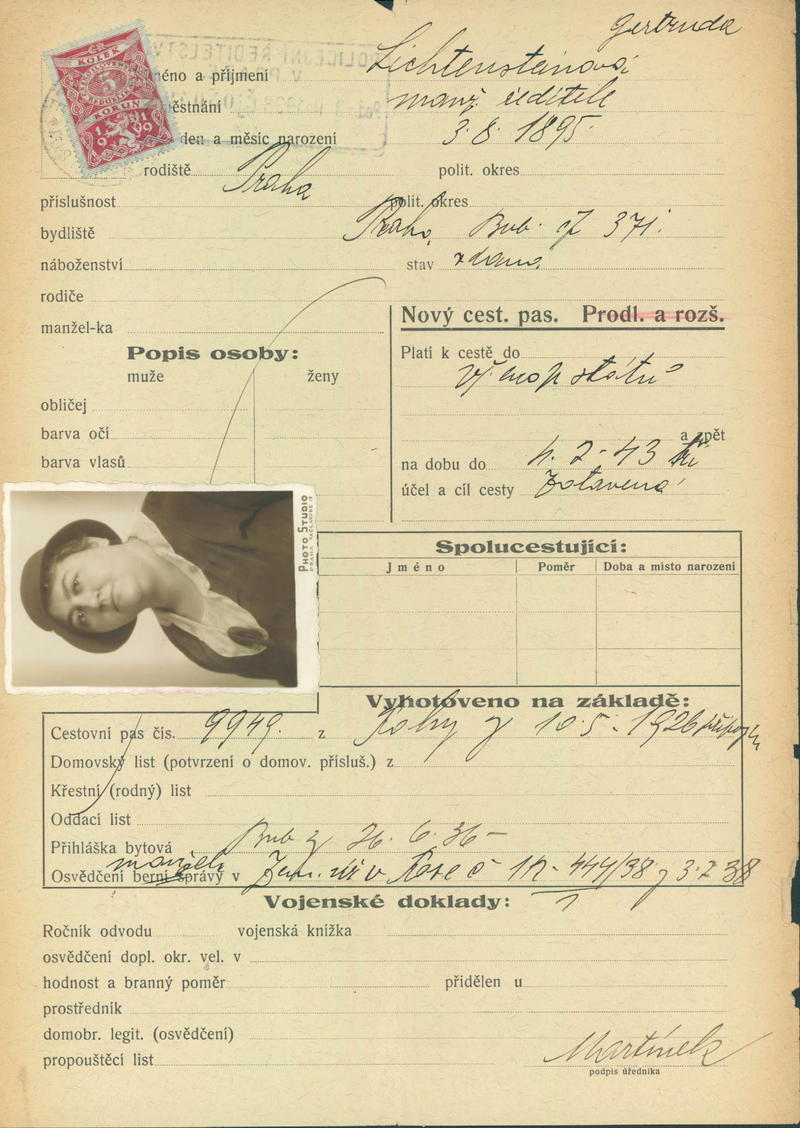 Gertruda
KOLEK
5
KORUN
1919
Jméno a příjmení Lichtensteinová
zaměstnání manž. ředitele
den a měsíc narození 3. 8. 1895.
rodiště Praha polit. okres
příslušnost polit. okres
bydliště Praha, Bub. čp 371.
náboženství stav vdaná
rodiče
manžel-ka
Nový cest. pas. Prodl. a rozš.
Popis osoby:
muže ženy
obličej
barva očí
barva vlasů
Platí k cestě do
států
a zpět
na dobu do 4. 7 - 43
účel a cíl cesty Zotavená
PHOTO STUDIO
PRAHA
Spolucestující:
Jméno Poměr Doba a misto narozeni
Vyhotoveno na základě:
Cestovní pas čís. 9949. z Rohy z 10. 5. 1926
Domovský list (potvrzení o domov. přísluš.) z
Křestní (rodný) list
Oddací list
Přihláška bytová Bub z 26. 6. 36 -
Osvědčení berní správy v manžela 444/38 z 3. 38
Vojenské doklady:
Ročník odvodu vojenská knížka
osvědčení dopl. okr. vel. v
hodnost a branný poměr přidělen u
prostředník
domobr. legit. (osvědčení)
propouštěcí list
Martínek
podpis úředníka